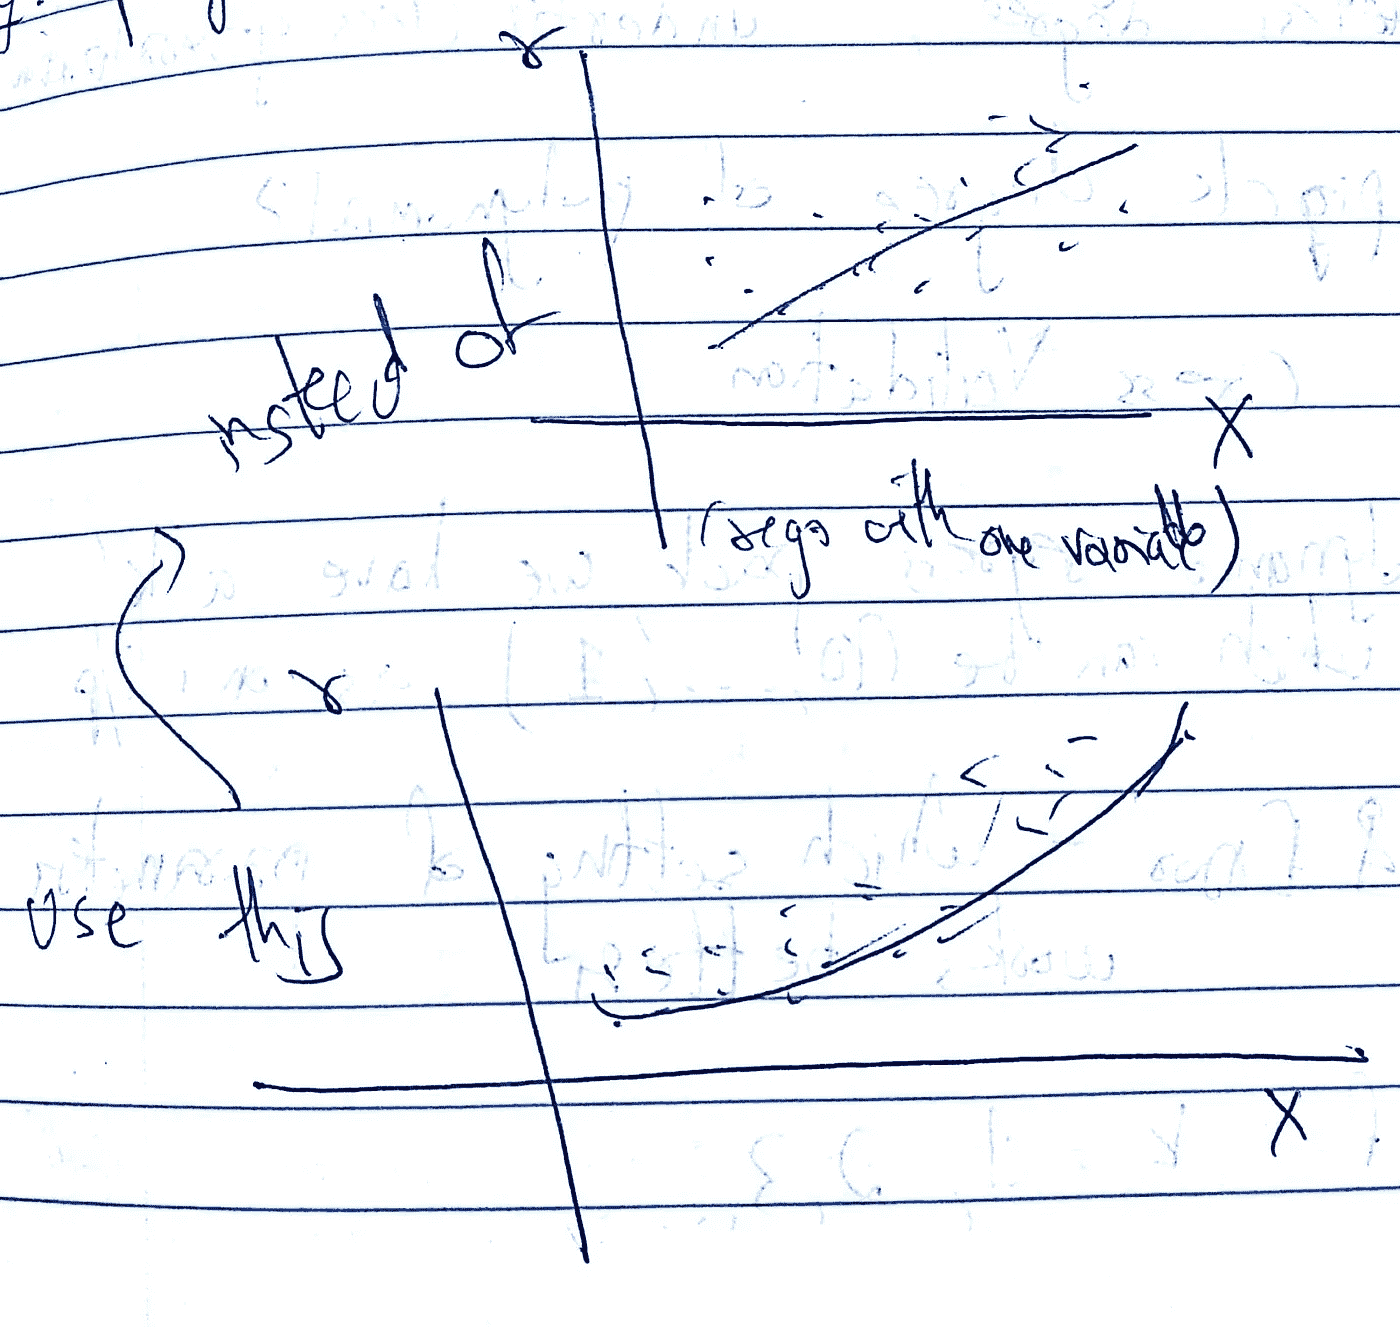 r
insteed of
X
(regs with one variable)
r
use this
X